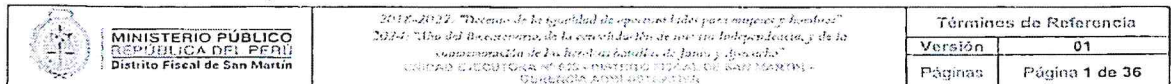 MINISTERIO PÚBLICO
REPÚBLICA DEL PERÚ
Distrito Fiscal de San Martín
2018-2027: "Decenio de la igualdad de oportunidades para mujeres y hombres"
2024: "Año del Bicentenario, de la consolidación de nuestra Independencia, y de la
conmemoración de las heroicas batallas de Junín y Ayacucho"
UNIDAD EJECUTORA N° - DISTRITO FISCAL DE SAN MARTÍN -
GERENCIA ADMINISTRATIVA
Términos de Referencia
Versión 01
Páginas Página 1 de 36